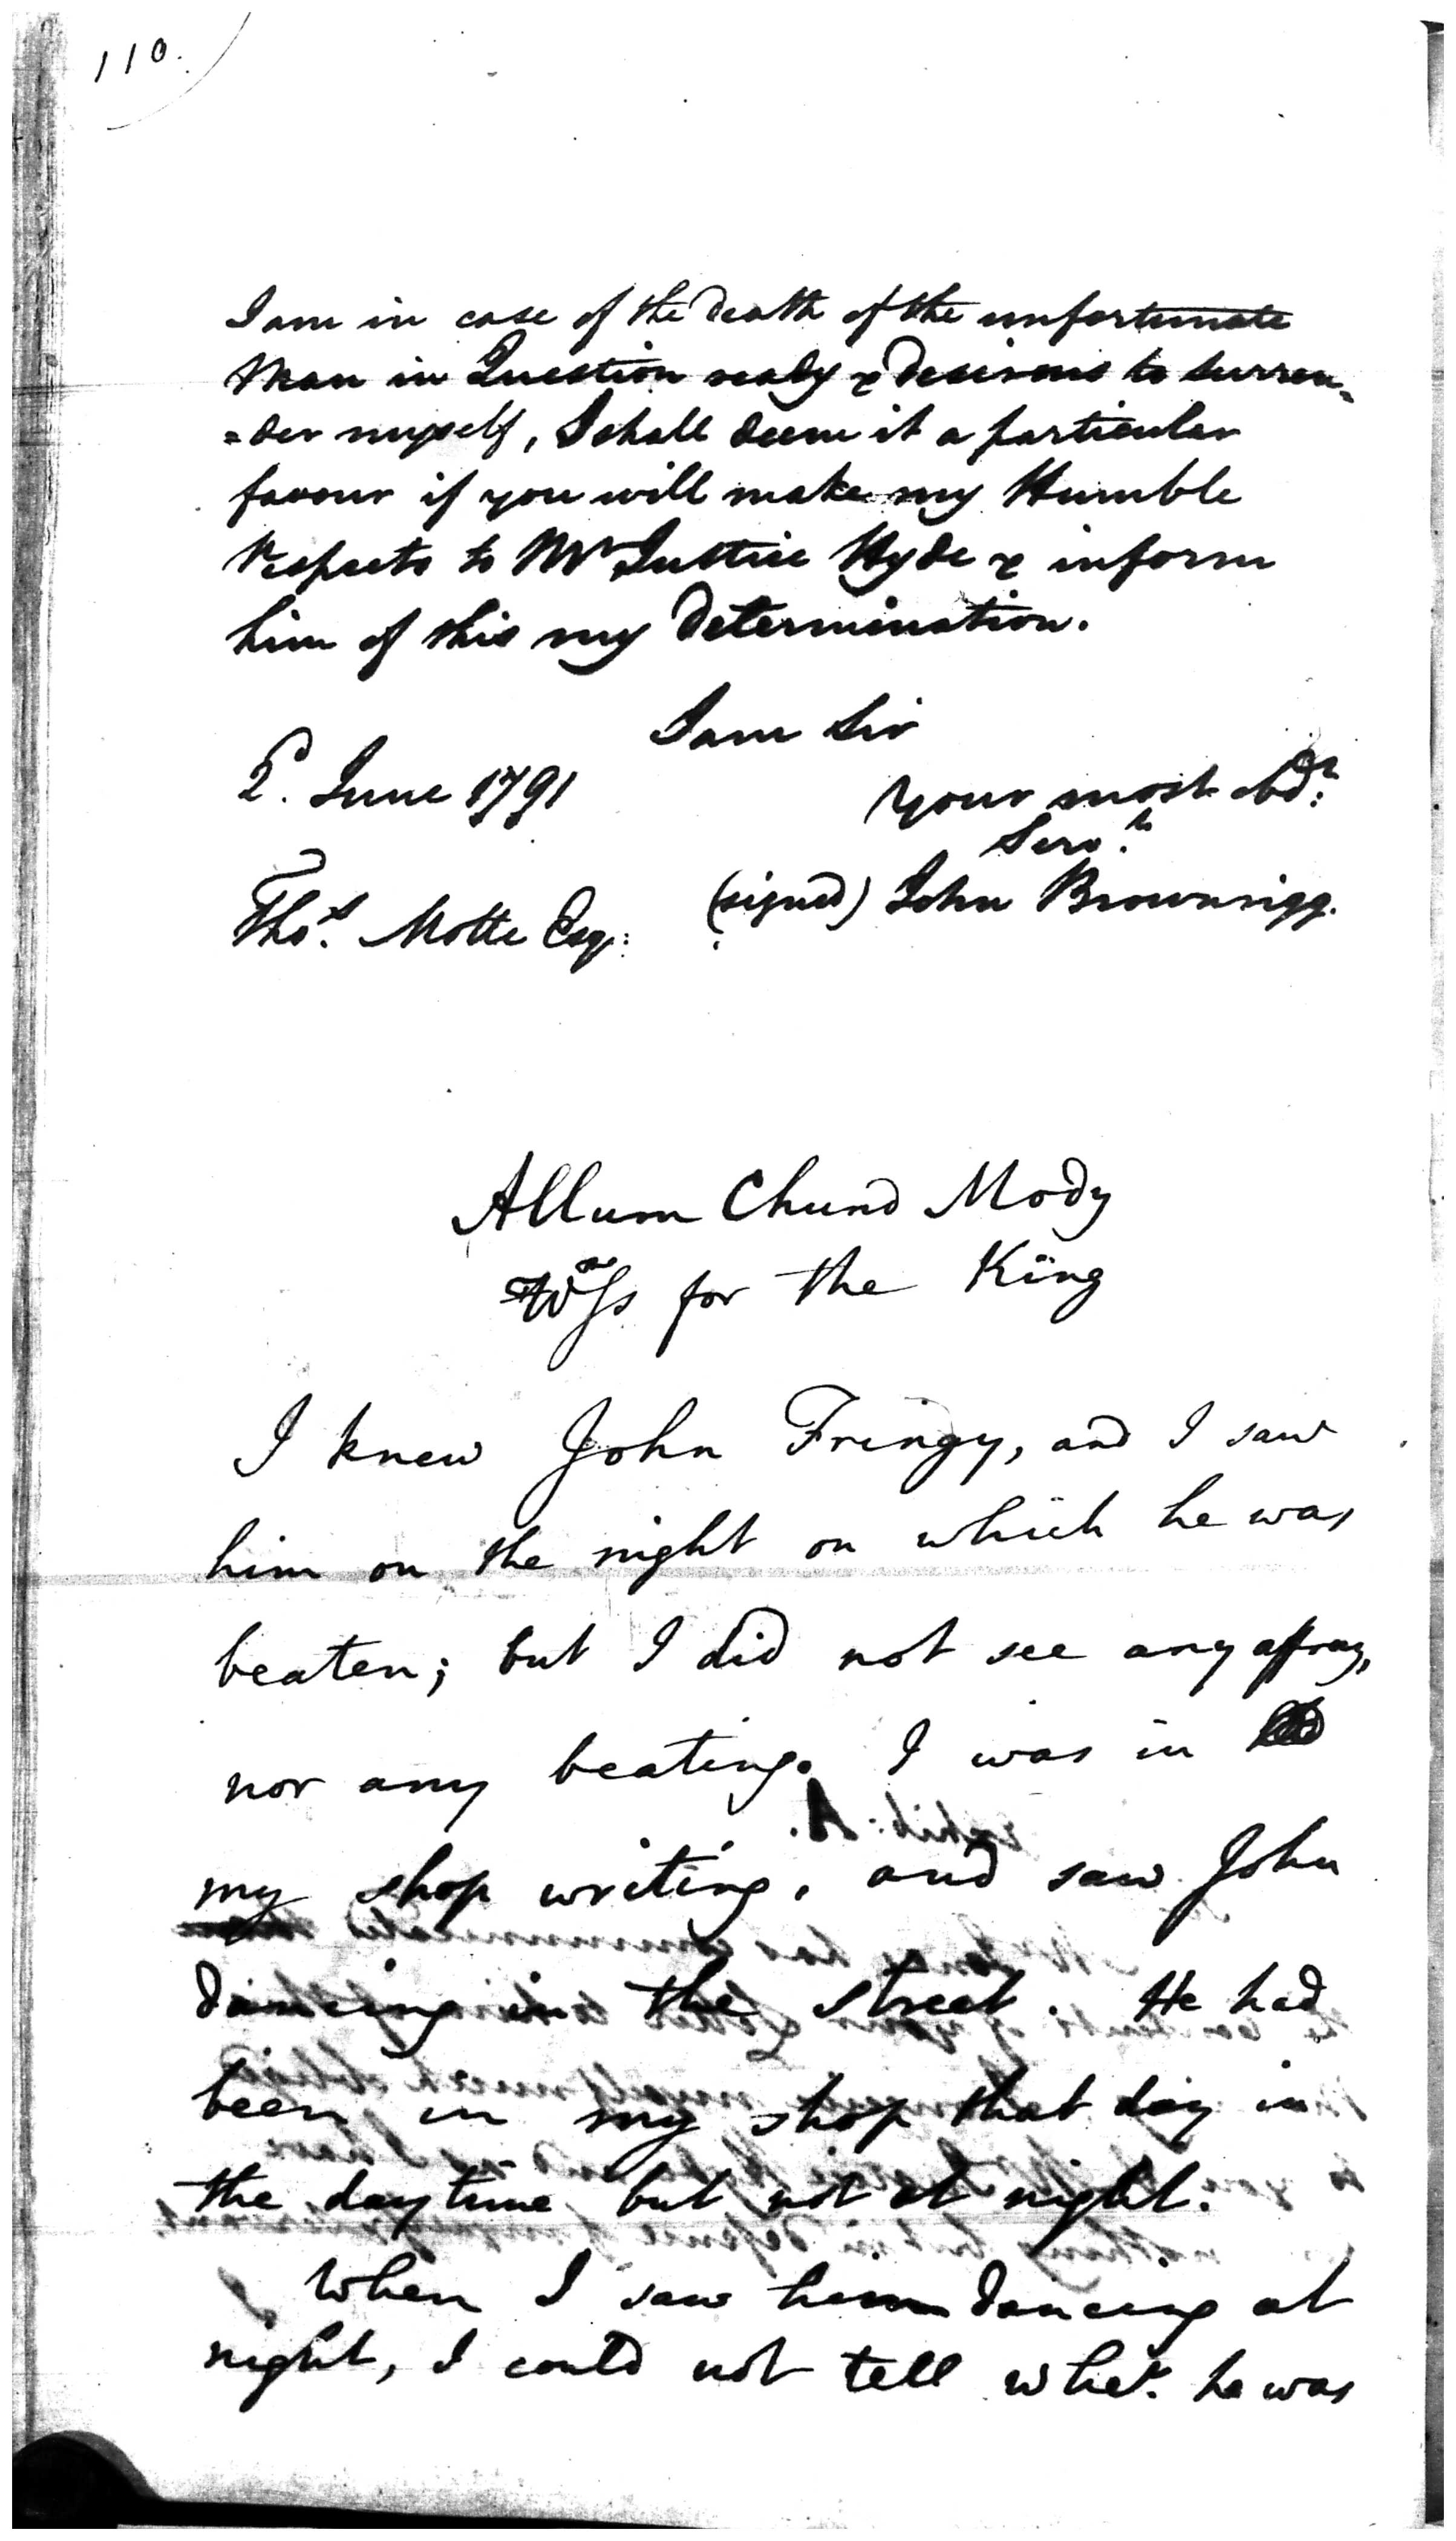 110.
I am in case of the death of the unfortunate
Man in Question ready & desirous to surren=
=der myself, I shall deem it a particular
favour if you will make my Humble
Respects to Mr Justice Hyde & inform
him of this my determination.
I am Sir
2. June 1791
Your most obdt:
Servt.
Thos. Motte Esq: (signed) John Brownrigg.
Allum Chund Mody
Wss for the King
I knew John Fringy, and I saw
him on the night on which he was
beaten; but I did not see any affray,
nor any beating. I was in
my shop writing, and saw John
dancing in the street. He had
been in my shop that day in
the daytime but not at night.
When I saw him dancing at
night, I could not tell whet. he was